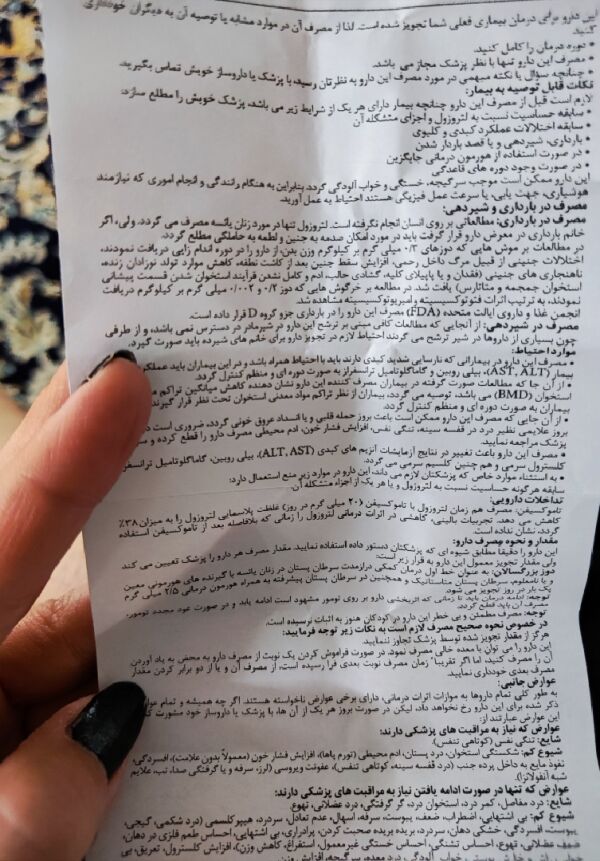 این دارو برای درمان بیماری فعلی شما تجویز شده است. لذا از مصرف آن در موارد مشابه یا توصیه آن به دیگران خودداری
کنید.
• دوره درمان را کامل کنید.
• مصرف این دارو تنها با نظر پزشک مجاز می باشد.
• چنانچه سؤال یا نکته مبهمی در مورد مصرف این دارو به نظرتان رسید، با پزشک یا داروساز خویش تماس بگیرید.
نکات قابل توصیه به بیمار:
لازم است قبل از مصرف این دارو چنانچه بیمار دارای هر یک از شرایط زیر می باشد، پزشک خویش را مطلع سازد:
• سابقه حساسیت نسبت به لتروزول و اجزای متشکله آن
• سابقه اختلالات عملکرد کبدی و کلیوی
• بارداری، شیردهی و یا قصد باردار شدن
• در صورت استفاده از هورمون درمانی جایگزین
• در صورت وجود دوره های قاعدگی
این دارو ممکن است موجب سرگیجه، خستگی و خواب آلودگی گردد. بنابراین به هنگام رانندگی و انجام اموری که نیازمند
هوشیاری، جهت یابی، یا سرعت عمل فیزیکی هستند احتیاط به عمل آورید.
مصرف در بارداری و شیردهی:
مصرف در بارداری: مطالعاتی بر روی انسان انجام نگرفته است. لتروزول تنها در مورد زنان یائسه مصرف می گردد. ولی، اگر
خانم بارداری در معرض دارو قرار گرفت باید در مورد امکان صدمه به جنین و لطمه به حاملگی مطلع گردد.
در مطالعات بر موش هایی که دوزهای ۰/۳ میلی گرم بر کیلوگرم وزن بدن از دارو را در دوره اندام زایی دریافت نمودند،
اختلالات جنینی از قبیل مرگ داخل رحمی، افزایش سقط جنین بعد از کاشت نطفه، کاهش موارد تولد نوزادان زنده،
ناهنجاری های جنینی (فقدان و یا پاپیلای کلیه، گشادی حالب، ادم و کامل نشدن فرآیند استخوان شدن قسمت پیشانی
استخوان جمجمه و متاتارس) یافت شد. در مطالعه بر خرگوش هایی که دوز ۰/۲ و ۰/۰۰۲ میلی گرم بر کیلوگرم دریافت
نمودند، به ترتیب اثرات فتوتوکسیسیته و امبریوتوکسیسیته مشاهده شد.
انجمن غذا و داروی ایالت متحده (FDA) مصرف این دارو را در بارداری جزو گروه D قرار داده است.
مصرف در شیردهی: از آنجایی که مطالعات کافی مبنی بر ترشح این دارو در شیرمادر در دسترس نمی باشد، و از طرفی
چون بسیاری از داروها در شیر ترشح می گردند احتیاط لازم در تجویز دارو برای خانم های شیرده باید صورت گیرد.
موارد احتیاط:
• مصرف این دارو در بیمارانی که نارسایی شدید کبدی دارند باید با احتیاط همراه باشد و در این بیماران باید عملکرد
بیمار (AST, ALT)، بیلی روبین و گاماگلوتامیل ترانسفراز به صورت دوره ای و منظم کنترل گردد.
• از آن جا که مطالعات صورت گرفته در بیماران مصرف کننده این دارو نشان دهنده کاهش میانگین تراکم
استخوان (BMD) می باشد، توصیه می گردد، بیماران از نظر تراکم مواد معدنی استخوان تحت نظر قرار گیرند
بیماران به صورت دوره ای و منظم کنترل گردد.
• از آن جایی که مصرف این دارو ممکن است باعث بروز حمله قلبی و یا انسداد عروق خونی گردد، ضروری است
بروز علایمی نظیر درد در قفسه سینه، تنگی نفس، افزایش فشار خون، ادم محیطی مصرف دارو را قطع کرده و
پزشک مراجعه نمایید.
• مصرف این دارو باعث تغییر در نتایج آزمایشات آنزیم های کبدی (ALT, AST)، بیلی روبین، گاماگلوتامیل ترانسفراز
کلسترول سرمی و هم چنین کلسیم سرمی می گردد.
• به استثناء موارد خاص که پزشکتان لازم می داند، این دارو در موارد زیر منع استعمال دارد:
سابقه هرگونه حساسیت نسبت به لتروزول و یا هر یک از اجزاء متشکله آن.
تداخلات دارویی:
تاموکسیفن: مصرف هم زمان لتروزول با تاموکسیفن (۲۰ میلی گرم در روز) غلظت پلاسمایی لتروزول را به میزان ۳۸٪
کاهش می دهد. تجربیات بالینی، کاهشی در اثرات درمانی لتروزول را زمانی که بلافاصله بعد از تاموکسیفن استفاده
گردد، نشان نداده است.
مقدار و نحوه مصرف دارو:
این دارو را دقیقا مطابق شیوه ای که پزشکتان دستور داده استفاده نمایید. مقدار مصرف هر دارو را پزشک تعیین می کند
ولی مقدار تجویز معمول این دارو به قرار زیر است:
دوز بزرگسالان: به عنوان خط اول درمان کمکی درازمدت سرطان پستان در زنان یائسه با گیرنده های هورمونی معین
و یا نامعلوم، سرطان پستان متاستاتیک و همچنین در سرطان پستان پیشرفته به همراه هورمون درمانی ۲/۵ میلی گرم
یک بار در روز تجویز می شود.
توجه: ادامه درمان باید تا زمانی که اثربخشی دارو بر روی تومور مشهود است ادامه یابد و در صورت عود مجدد تومور،
مصرف آن باید قطع گردد.
توجه: مصرف مطمئن و بی خطر این دارو در کودکان هنوز به اثبات نرسیده است.
در خصوص نحوه صحیح مصرف لازم است به نکات زیر توجه فرمایید:
هرگز از مقدار تجویز شده توسط پزشک تجاوز ننمایید.
این دارو را می توان با معده خالی مصرف نمود. در صورت فراموش کردن یک نوبت از مصرف دارو به محض به یاد آوردن
آن را مصرف کنید، اما اگر تقریباً زمان مصرف نوبت بعدی فرا رسیده است، از مصرف آن و یا از دو برابر کردن مقدار
مصرف بعدی خودداری نمایید.
عوارض جانبی:
به طور کلی تمام داروها به موازات اثرات درمانی، دارای برخی عوارض ناخواسته هستند. اگر چه همیشه و تمام
ذکر شده برای این دارو رخ نخواهد داد، لیکن در صورت بروز هر یک از آن ها، با پزشک یا داروساز خود مشورت
این عوارض عبارتند از:
عوارض که نیاز به مراقبت های پزشکی دارند:
شایع: تنگی نفس (کوتاهی تنفس).
شیوع کم: شکستگی استخوان، درد پستان، ادم محیطی (تورم پاها)، افزایش فشار خون (معمولاً بدون علامت)، افسردگی،
نفوذ مایع به داخل پرده جنب (درد قفسه سینه، کوتاهی تنفس)، عفونت ویروسی (لرز، سرفه و یا گرفتگی صدا، تب، علایم
شبه آنفولانزا).
عوارض که تنها در صورت ادامه یافتن نیاز به مراقبت های پزشکی دارند:
شایع: درد مفاصل، کمر درد، استخوان درد، گر گرفتگی، درد عضلانی، تهوع.
شیوع کم: بی اشتهایی، اضطراب، ضعف، یبوست، سرفه، اسهال، عدم تعادل، سردرد، هیپرکلسمی (درد شکمی، گیجی،
یبوست، افسردگی، خشکی دهان، سردرد، بریده بریده صحبت کردن، پرادراری، بی اشتهایی، احساس طعم فلزی در دهان،
ضعف عضلانی، تهوع، احساس تشنگی، احساس خستگی غیرمعمول، استفراغ، کاهش وزن)، افزایش کلسترول، تعریق، بی